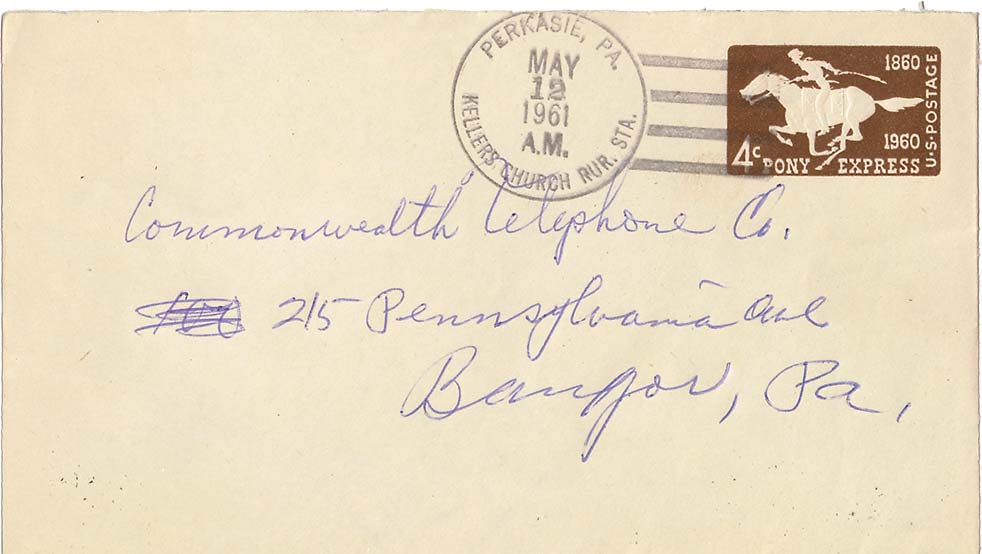 PERKASIE, PA.
MAY
12
1961
A.M.
KELLERS CHURCH RUR. STA.
1860
1960
U.S. POSTAGE
4c PONY EXPRESS
Commonwealth Telephone Co.
215 Pennsylvania Ave
Bangor, Pa.